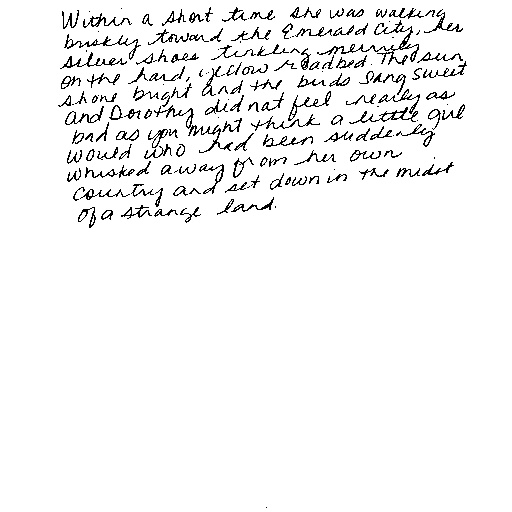 Within a short time she was walking
briskly toward the Emerald City, her
silver shoes tinkling merrily
on the hard, yellow roadbed. The sun
shone bright and the birds sang sweet
and Dorothy did not feel nearly as
bad as you might think a little girl
would who had been suddenly
whisked away from her own
country and set down in the midst
of a strange land.